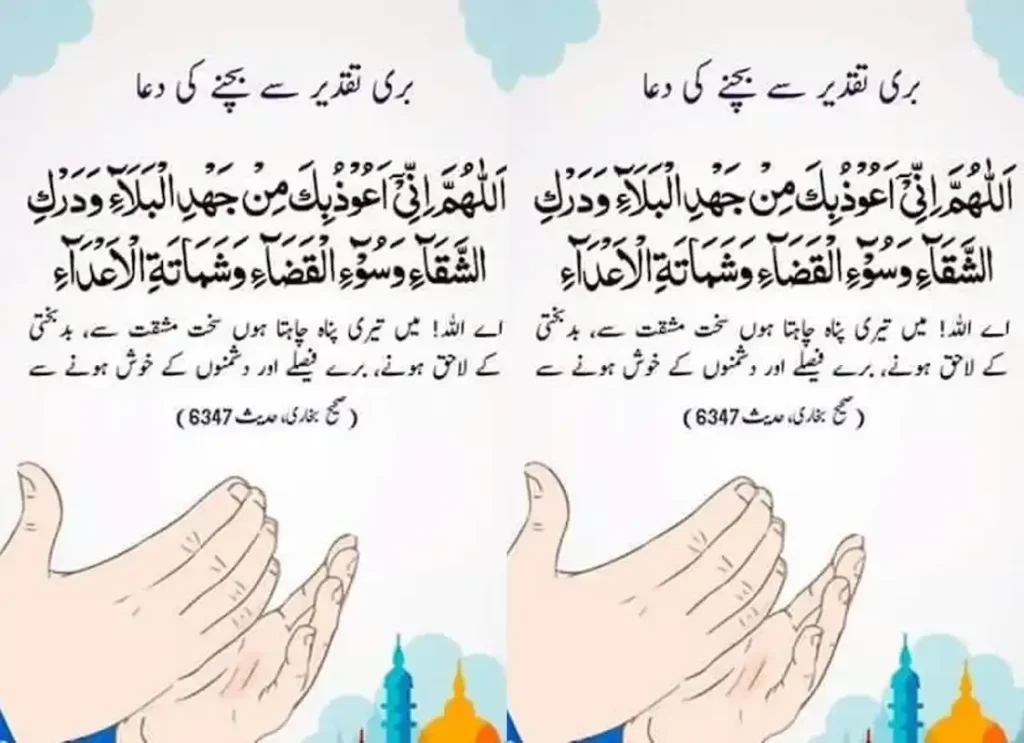 بری تقدیر سے بچنے کی دعا
اَللّٰهُمَّ اِنِّیْٓ اَعُوْذُبِكَ مِنْ جَهْدِ الْبَلَآءِ وَدَرَكِ
الشَّقَآءِ وَسُوْٓءِ الْقَضَآءِ وَشَمَاتَةِ الْاَعْدَآءِ
اے اللہ! میں تیری پناہ چاہتا ہوں سخت مشقت سے، بدبختی
کے لاحق ہونے، برے فیصلے اور دشمنوں کے خوش ہونے سے
(صحیح بخاری، حدیث 6347)
بری تقدیر سے بچنے کی دعا
اَللّٰهُمَّ اِنِّیْٓ اَعُوْذُبِكَ مِنْ جَهْدِ الْبَلَآءِ وَدَرَكِ
الشَّقَآءِ وَسُوْٓءِ الْقَضَآءِ وَشَمَاتَةِ الْاَعْدَآءِ
اے اللہ! میں تیری پناہ چاہتا ہوں سخت مشقت سے، بدبختی
کے لاحق ہونے، برے فیصلے اور دشمنوں کے خوش ہونے سے
(صحیح بخاری، حدیث 6347)